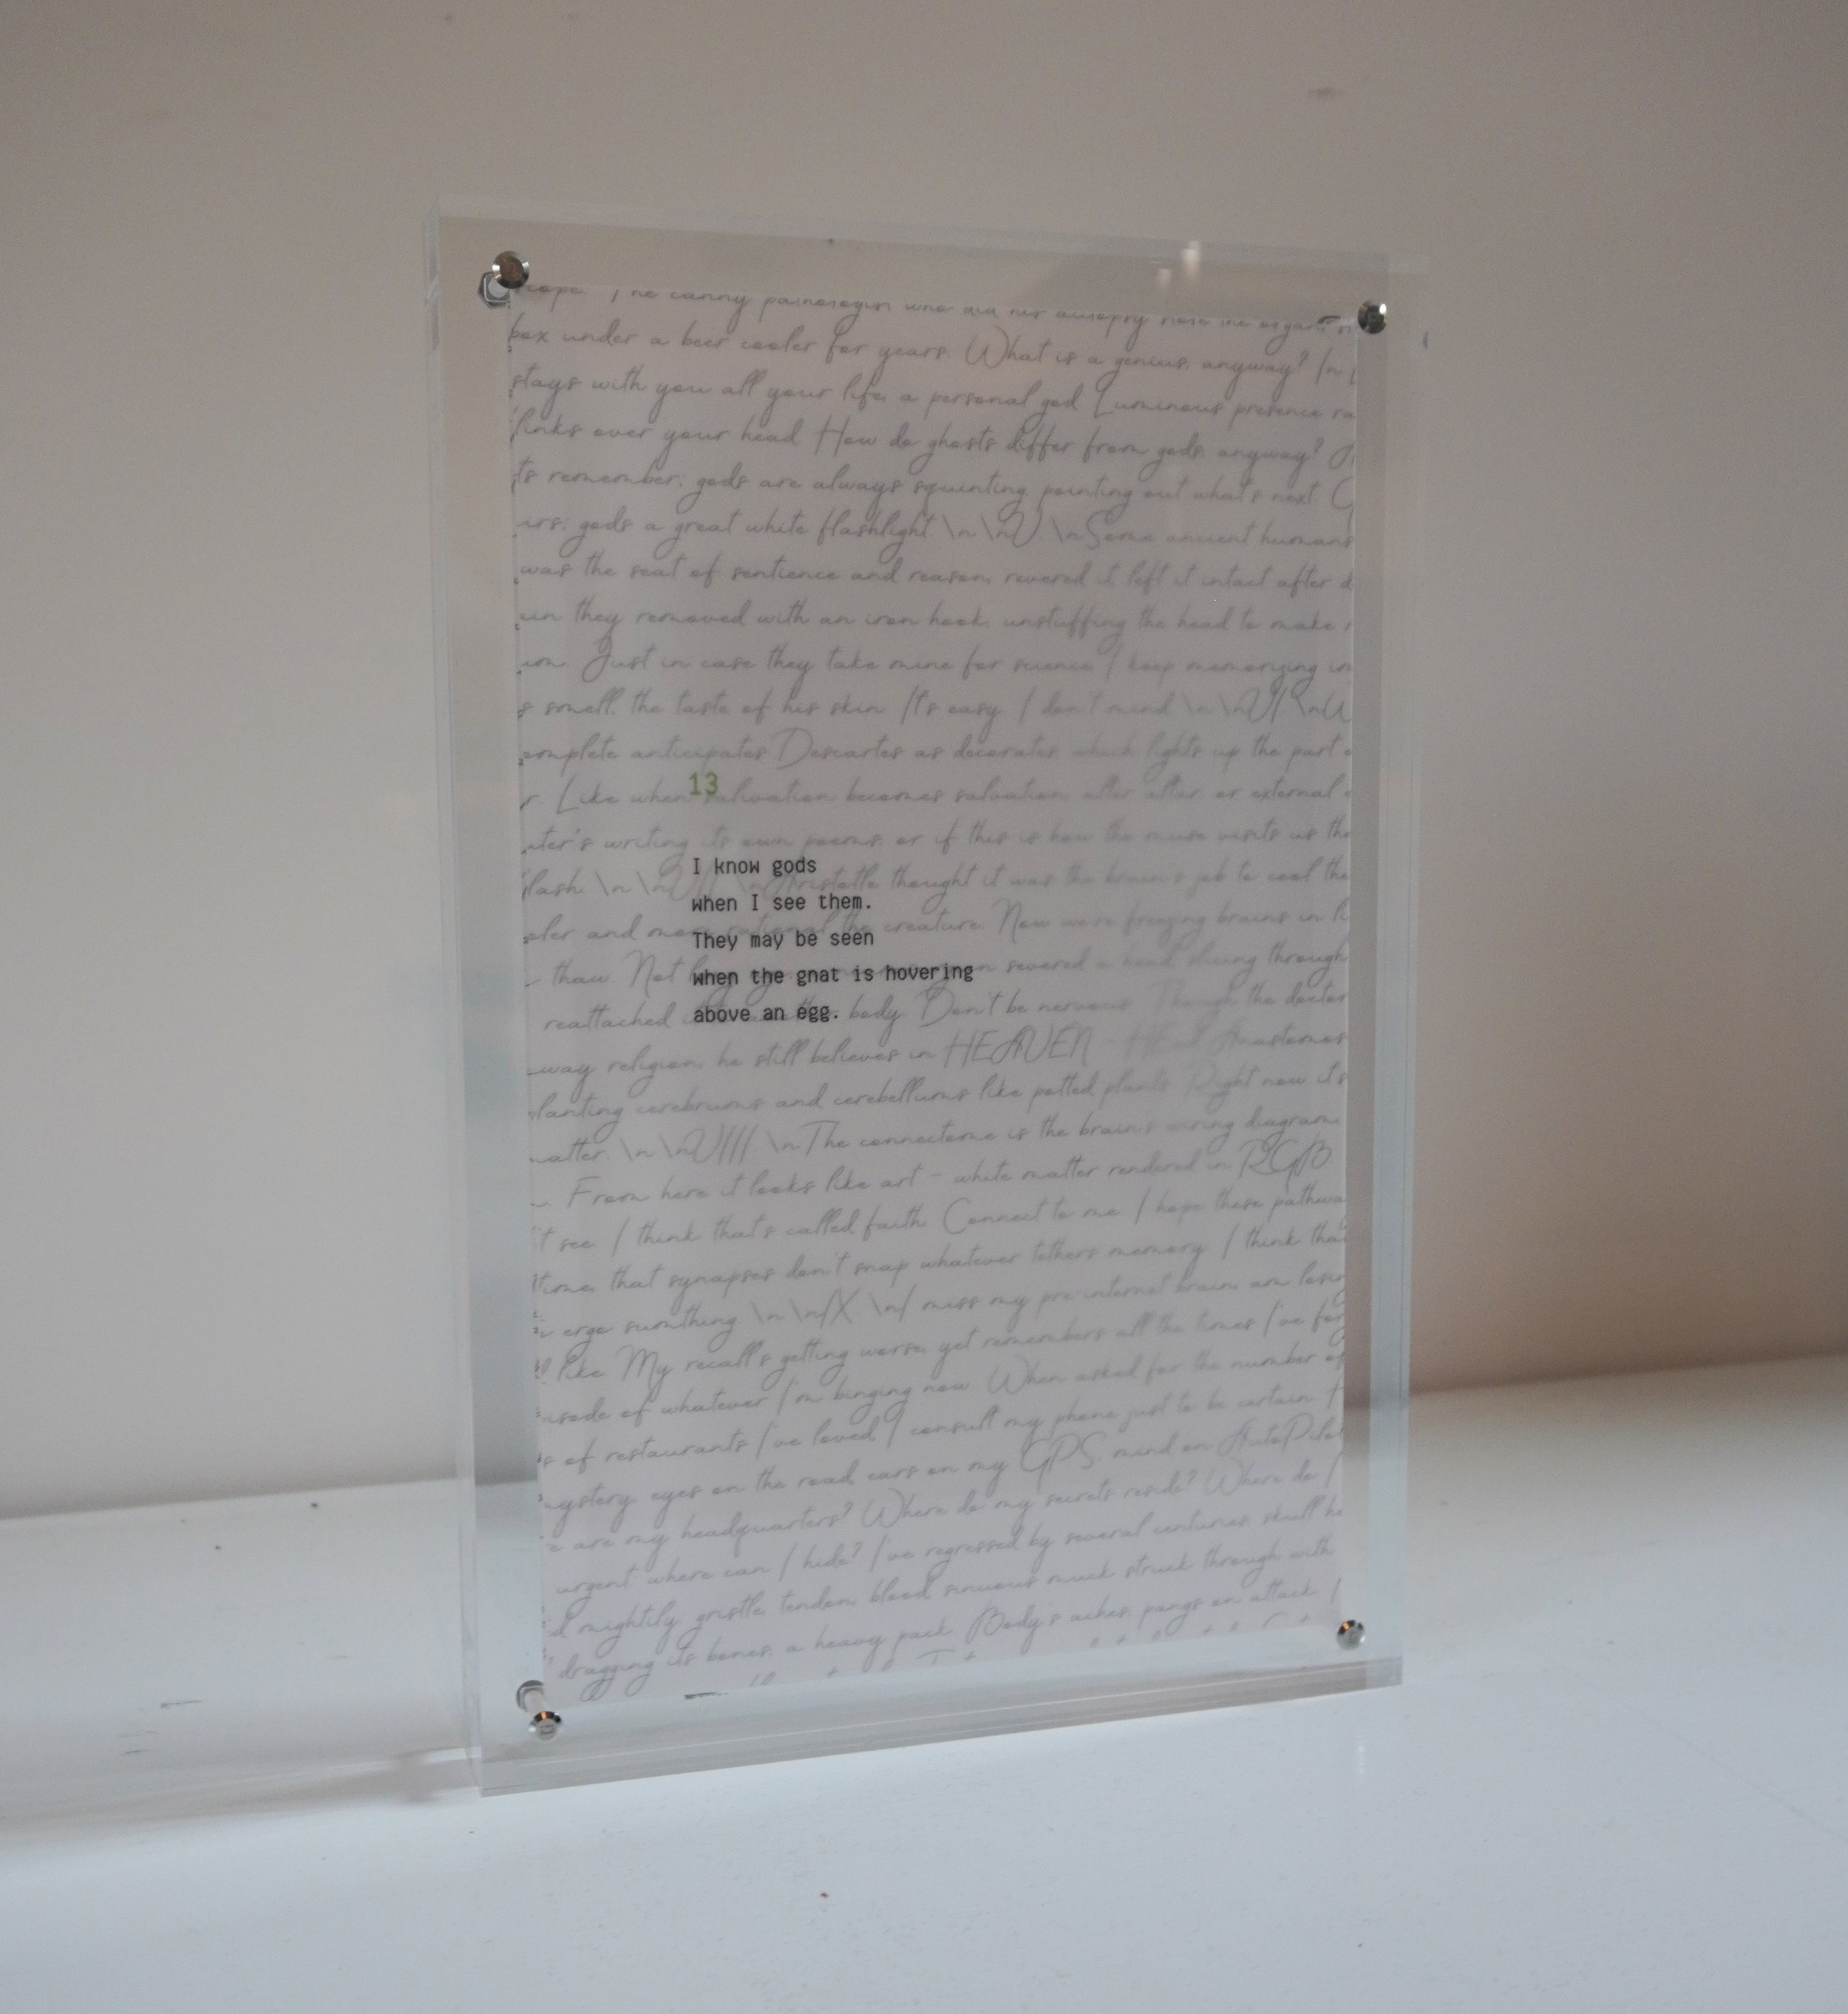 box under a beer cooler for years. What is a genius, anyway? In
stays with you all your life, a personal god. Luminous presence
links over your head. How do ghosts differ from gods, anyway?
remember; gods are always squinting, pointing out what's next.
gods a great white flashlight. \n \nV \nSome ancient humans
was the seat of sentience and reason, revered it, left it intact after
they removed with an iron hook, unstuffing the head to make
Just in case they take mine for science, I keep memorizing
smell, the taste of his skin. It's easy. I don't mind. \n \nVI. \n
anticipates Descartes as decorates, which lights up the part
13
Like when salivation becomes salvation, alter altar, or external
writing its own poems, or if this is how the muse visits us
I know gods
\n \nVII \nAristotle thought it was the brain's job to cool the
when I see them.
and more rational the creature. Now we're freezing brains in
They may be seen
thaw. Not severed a head slicing through
when the gnat is hovering
reattached body. Don't be nervous. Though the doctor
above an egg.
religion, he still believes in HEAVEN -
cerebrums and cerebellums like potted plants. Right now it's
matter. \n \nVIII. \nThe connectome is the brain's wiring diagram.
From here it looks like art - white matter rendered in RGB.
see. I think that's called faith. Connect to me. I hope these
time, that synapses don't snap whatever tethers memory. I think
ergo sumthing. \n \nIX \nI miss my pre-internet brain, am
like. My recall's getting worse, yet remembers all the times I've
of whatever I'm binging now. When asked for the number of
of restaurants I've loved, I consult my phone just to be certain.
mystery, eyes on the road, ears on my GPS, mind on AutoPilot
are my headquarters? Where do my secrets reside? Where do I
urgent where can I hide? I've regressed by several centuries, skull
mightily, gristle, tendon, blood, sinuous muck struck through with
dragging its bones, a heavy pack. Body's aches, pangs on attack. I